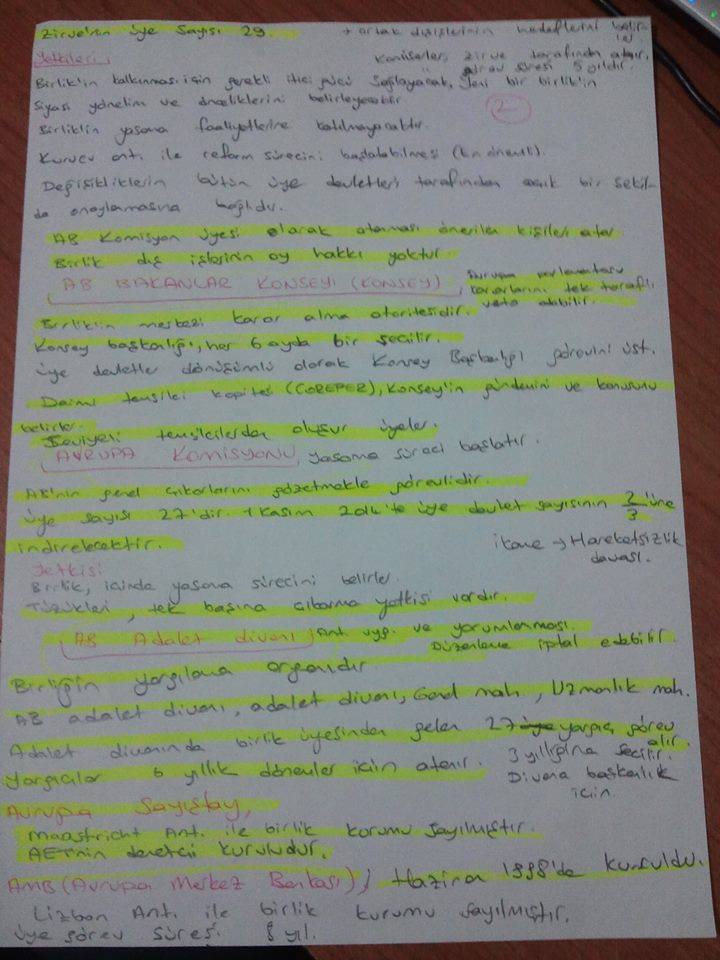 Zirve'nin üye sayısı 29. → ortak dışişlerinin hedeflerini belirler.
Yetkileri; Komiserler, zirve tarafından atanır,
görev süresi 5 yıldır.
Birlik'in kalkınması için gerekli itici gücü sağlayacak, yeni bir birlik'in
siyasi yönelim ve önceliklerini belirleyecektir.
2
Birlik'in yasama faaliyetlerine katılmayacaktır.
Kurucu ant. ile reform sürecini başlatabilmesi (en önemli).
Değişikliklerin bütün üye devletleri tarafından açık bir şekil-
de onaylamasına bağlıdır.
AB Komisyon üyesi olarak ataması önerilen kişileri atar
Birlik dış işlerinin oy hakkı yoktur
AB BAKANLAR KONSEYİ (KONSEY), Avrupa parlementosu
kararlarını tek taraflı
veto edebilir.
Birlik'in merkezi karar alma otoritesidir.
Konsey başkanlığı, her 6 ayda bir seçilir.
üye devletler dönüşümlü olarak Konsey Başkanlığı görevini üst.
Daimi temsilci (COREPER), Konsey'in gündemini ve konusunu
belirler.
temsilcilerden oluşur üyeler.
AVRUPA KOMİSYONU, yasama süreci başlatır.
AB'nin genel çıkarlarını gözetmekle görevlidir.
üye sayısı 27'dir. 1 Kasım 2014'te üye devlet sayısının 2/3'üne
indirelecektir.
ikame → Hareketsizlik
davası.
Yetkisi
Birlik, içinde yasama sürecini belirler.
Tüzükleri, tek başına çıkarma yetkisi vardır.
AB Adalet divanı, Ant. uyg. ve yorumlanması.
Düzenleme iptal edebilir.
Birliğin yargılama organıdır
AB adalet divanı, adalet divanı, Genel mah., Uzmanlık mah.
Adalet divanında birlik üyesinden gelen 27 yargıç görev
alır.
Yargıçlar 6 yıllık dönemler için atanır. 3 yıllığına seçilir.
Divana başkanlık
için.
Avrupa Sayıştay,
Maastricht Ant. ile birlik kurumu sayılmıştır.
AET'nin denetçi kuruludur.
AMB (Avrupa Merkez Bankası), Haziran 1998'de kuruldu.
Lizbon Ant. ile birlik kurumu sayılmıştır.
üye görev süresi 8 yıl.